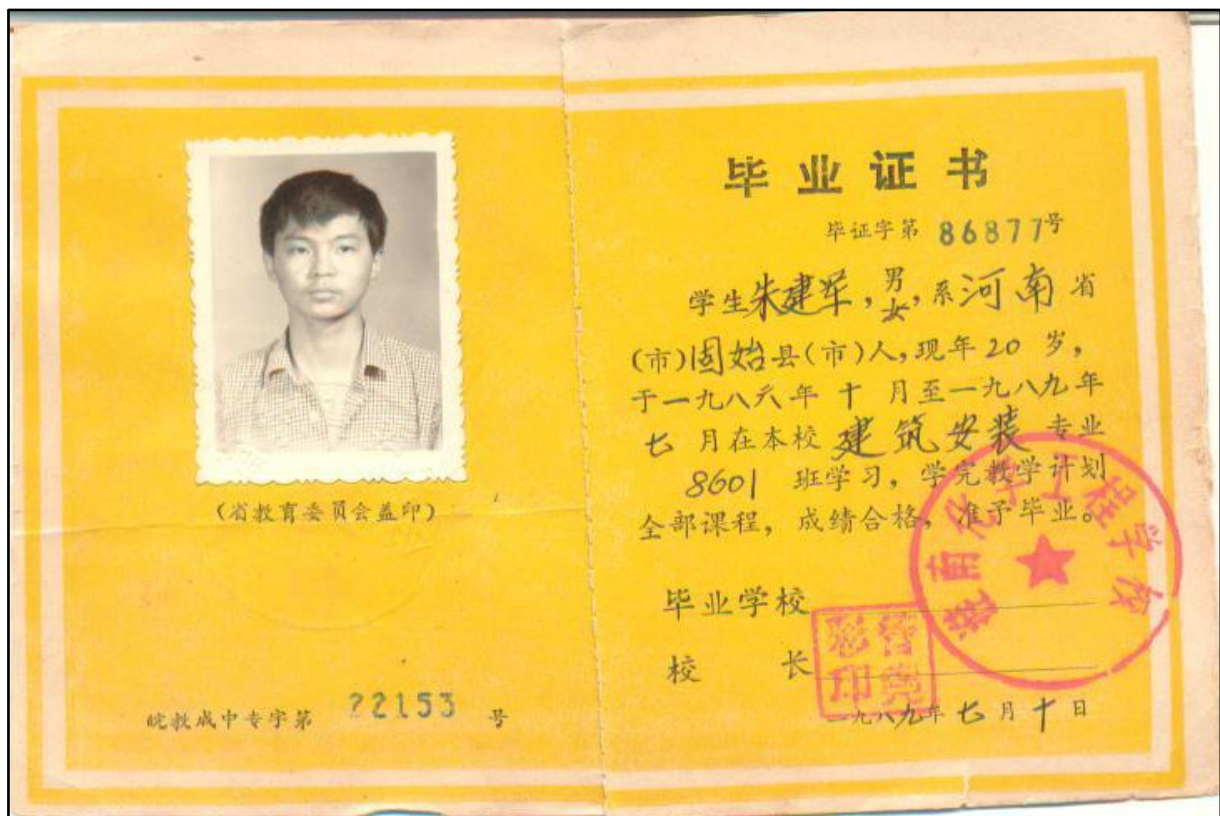 (省教育委员会盖印)
皖教成中专字第 22153 号
毕业证书
毕证字第 86877号
学生朱建军,男女,系河南省
(市)固始县(市)人,现年20岁,
于一九八六年十月至一九八九年
七月在本校建筑安装专业
8601班学习,学完教学计划
全部课程,成绩合格,准予毕业。
毕业学校
校长
一九八九年七月十日
化学工程学校